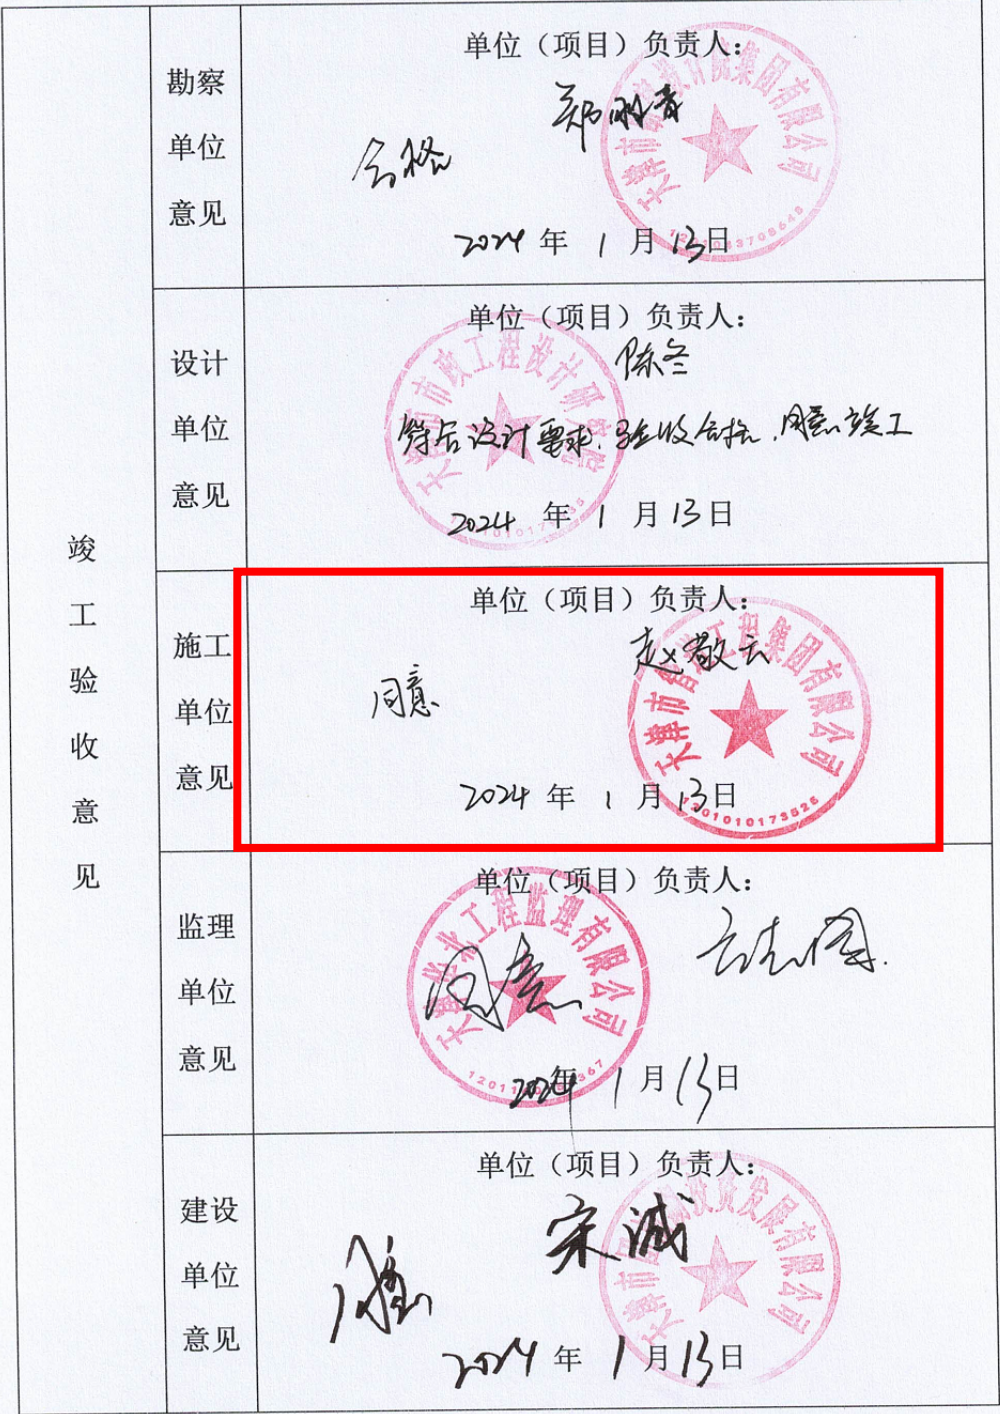 竣工验收意见
勘察单位意见
单位（项目）负责人：
郑
合格
2024 年 1 月 13 日
集团有限公司
设计单位意见
单位（项目）负责人：
陈冬
符合设计要求，验收合格，同意竣工
2024 年 1 月 13 日
市政工程设计研究院
施工单位意见
单位（项目）负责人：
赵敬云
同意
2024 年 1 月 13 日
工程集团有限公司
1201010173525
监理单位意见
单位（项目）负责人：
同意
2024 年 1 月 13 日
工程监理有限公司
建设单位意见
单位（项目）负责人：
宋诚
同意
2024 年 1 月 13 日
投资发展有限公司